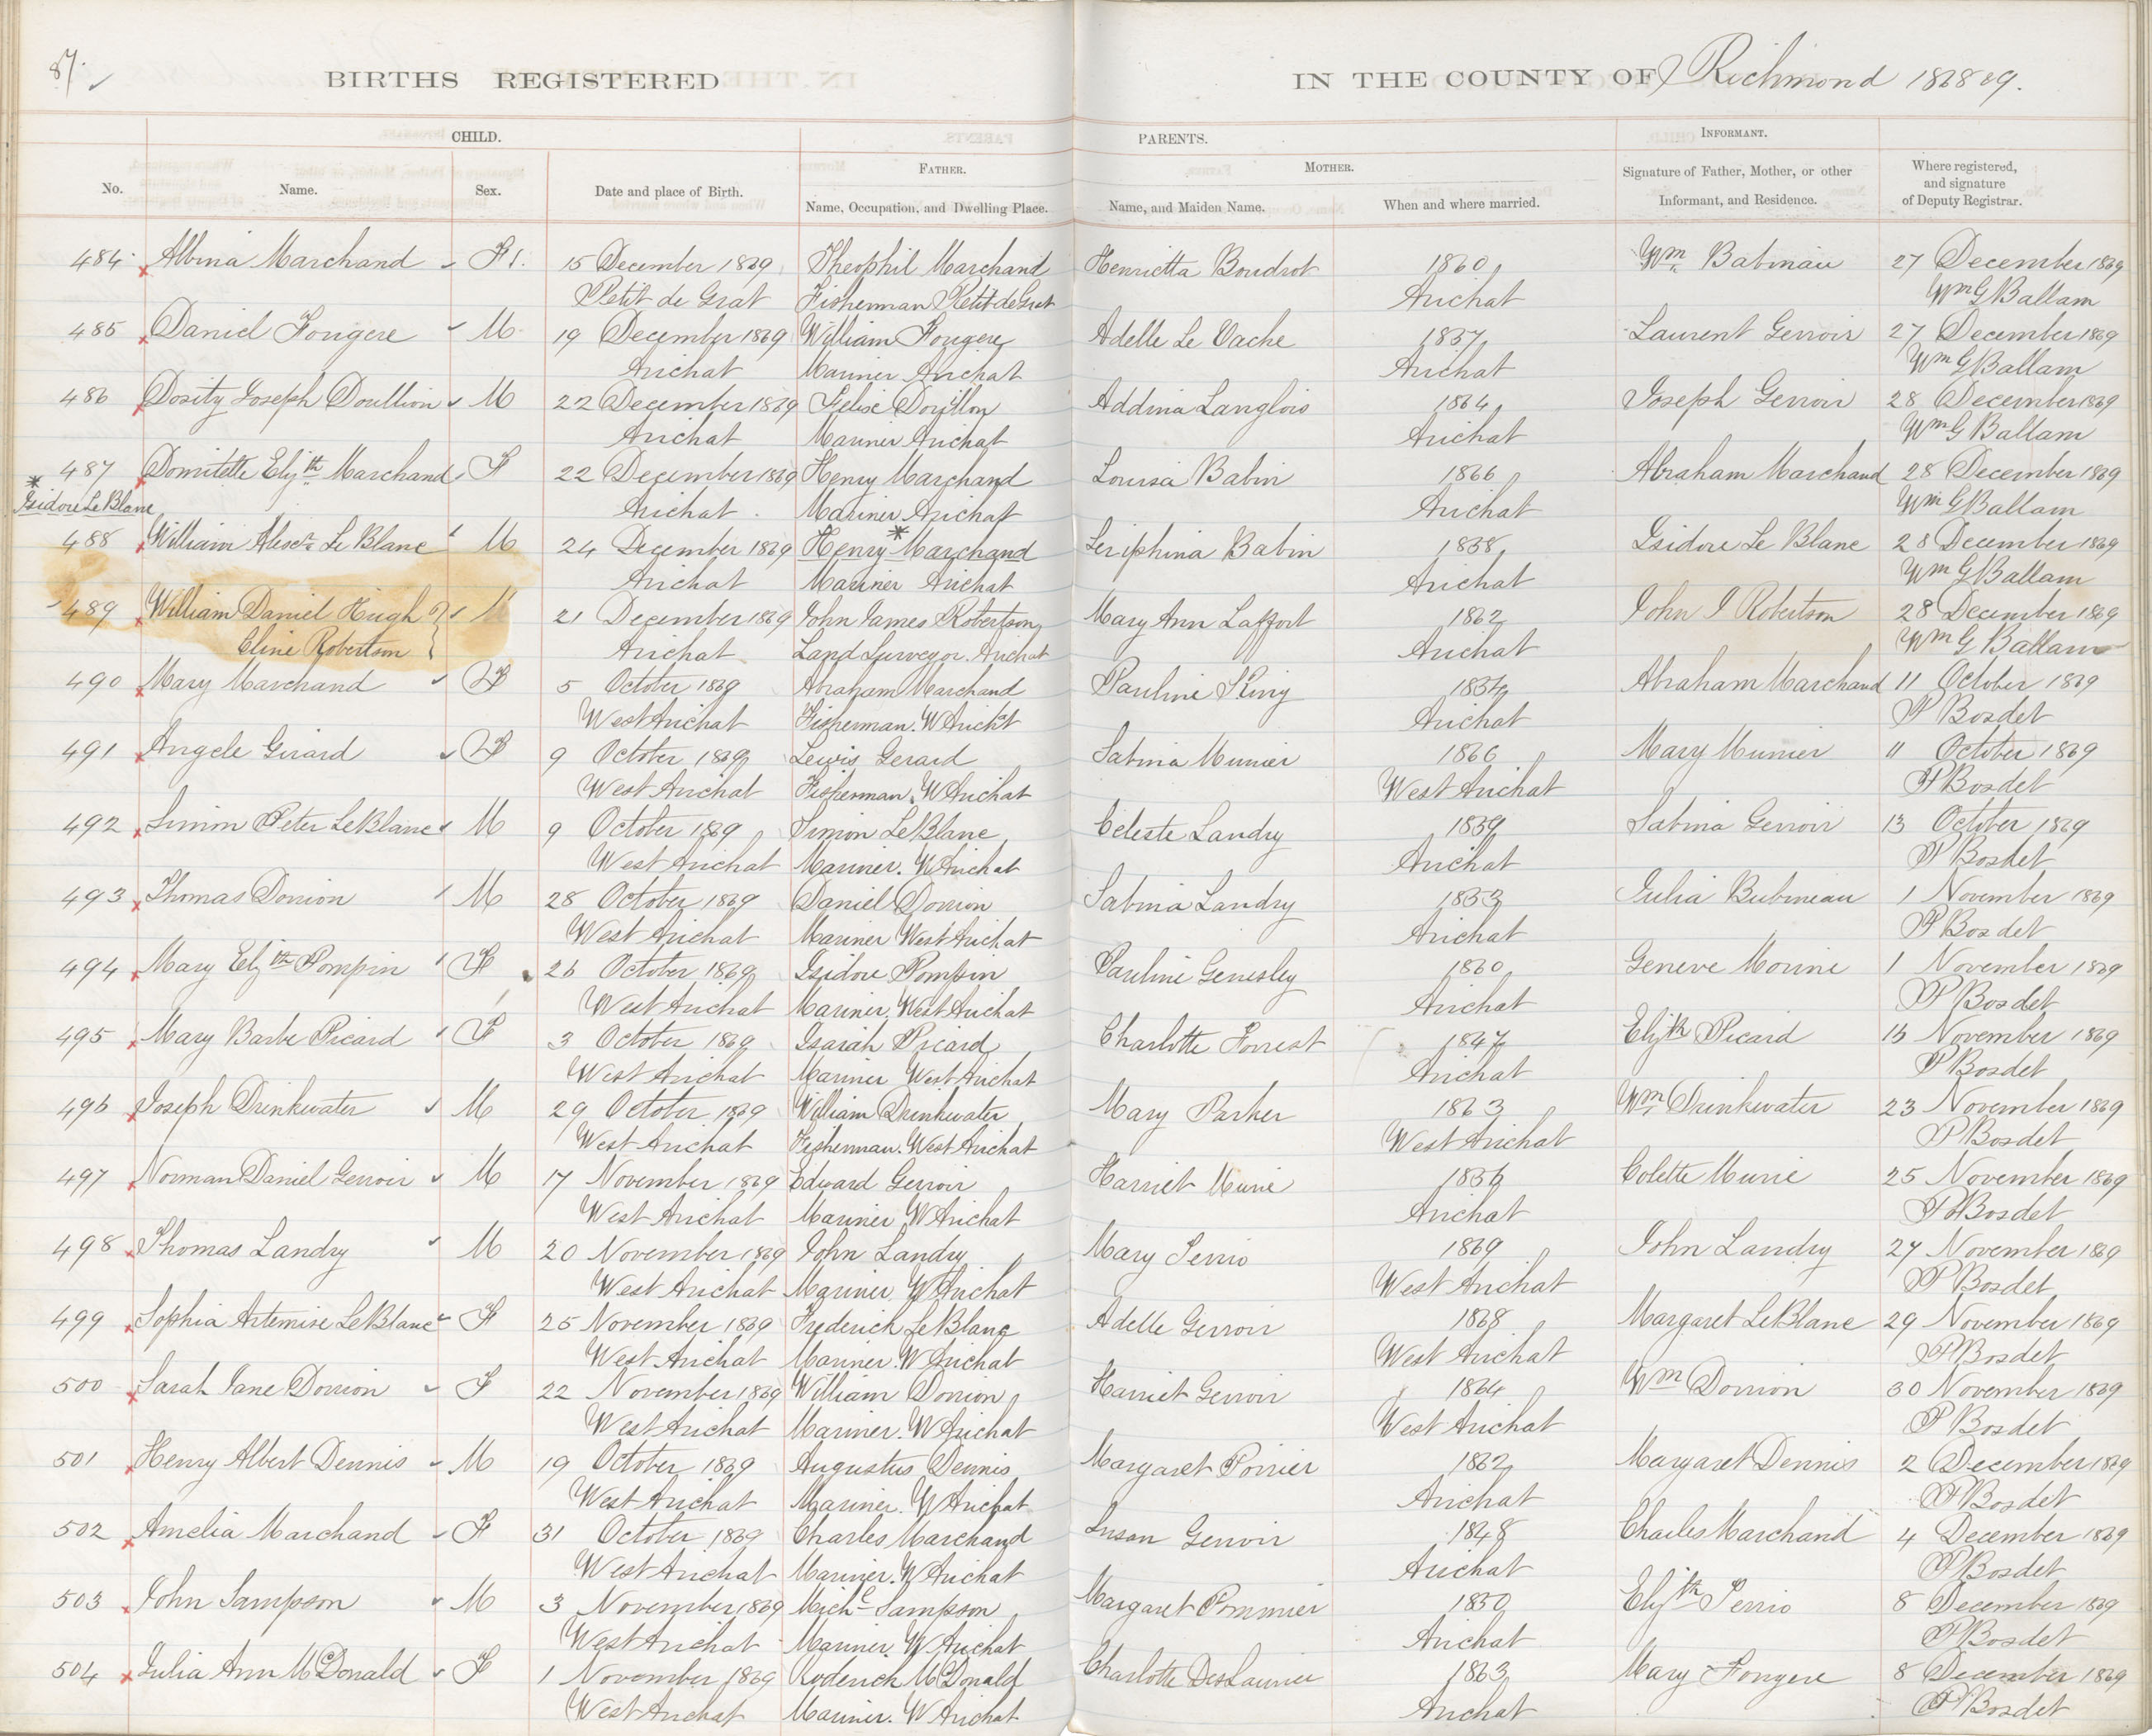 87.
BIRTHS REGISTERED IN THE COUNTY OF Richmond 1868 69.
CHILD. PARENTS. INFORMANT.
FATHER. MOTHER.
No. Name. Sex. Date and place of Birth. Name, Occupation, and Dwelling Place. Name, and Maiden Name. When and where married. Signature of Father, Mother, or other Informant, and Residence. Where registered, and signature of Deputy Registrar.
484 Albina Marchand F. 15 December 1869 Theophil Marchand Henrietta Boudrot 1860 Wm Babinau 27 December 1869
Petit de Grat Fisherman Petit de Grat Arichat Wm G Ballam
485 Daniel Fougere M 19 December 1869 William Fougere Adelle Le Vache 1857 Laurent Gerroir 27 December 1869
Arichat Mariner Arichat Arichat Wm G Ballam
486 Dosity Joseph Doullion M 22 December 1869 Felise Doullon Addina Langlois 1864 Joseph Gerroir 28 December 1869
Arichat Mariner Arichat Arichat Wm G Ballam
487 Domitette Elizth Marchand F 22 December 1869 Henry Marchand Louisa Babin 1866 Abraham Marchand 28 December 1869
* Isidore Le Blanc Arichat Mariner Arichat Arichat Wm G Ballam
488 William Alexr Le Blanc M 24 December 1869 Henry * Marchand Seriphina Babin 1858 Isidore Le Blanc 28 December 1869
Arichat Mariner Arichat Arichat Wm G Ballam
489 William Daniel Hugh M 21 December 1869 John James Robertson Mary Ann Laffort 1862 John J Robertson 28 December 1869
Cline Robertson Arichat Land Surveyor. Arichat Arichat Wm G Ballam
490 Mary Marchand F 5 October 1869 Abraham Marchand Pauline King 1854 Abraham Marchand 11 October 1869
West Arichat Fisherman. W Aricht Arichat P Bosdet
491 Angele Girard F 9 October 1869 Lewis Gerard Sabina Munier 1866 Mary Munier 11 October 1869
West Arichat Fisherman. W Arichat West Arichat P Bosdet
492 Simon Peter LeBlanc M 9 October 1869 Simon LeBlanc Celeste Landry 1859 Sabina Gerroir 13 October 1869
West Arichat Mariner. W Arichat Arichat P Bosdet
493 Thomas Dorrion M 28 October 1869 Daniel Dorrion Sabina Landry 1853 Julia Bubineau 1 November 1869
West Arichat Mariner West Arichat Arichat P Bosdet
494 Mary Elizth Pompin F 26 October 1869 Isidore Pompin Pauline Genesley 1860 Geneve Morine 1 November 1869
West Arichat Mariner. West Arichat Arichat P Bosdet
495 Mary Barbe Picard F 3 October 1869 Isaiah Picard Charlotte Forrest 1847 Elizth Picard 15 November 1869
West Arichat Mariner West Arichat Arichat P Bosdet
496 Joseph Drinkwater M 29 October 1869 William Drinkwater Mary Parker 1863 Wm Drinkwater 23 November 1869
West Arichat Fisherman. West Arichat West Arichat P Bosdet
497 Norman Daniel Gerroir M 17 November 1869 Edward Gerroir Harriet Murie 1856 Colette Murie 25 November 1869
West Arichat Mariner W Arichat Arichat P Bosdet
498 Thomas Landry M 20 November 1869 John Landry Mary Perrio 1869 John Landry 27 November 1869
West Arichat Mariner W Arichat West Arichat P Bosdet
499 Sophia Artemise LeBlanc F 25 November 1869 Frederick LeBlanc Adelle Gerroir 1868 Margaret LeBlanc 29 November 1869
West Arichat Mariner. W Arichat West Arichat P Bosdet
500 Sarah Jane Dorrion F 22 November 1869 William Dorrion Harriet Gerroir 1864 Wm Dorrion 30 November 1869
West Arichat Mariner. W Arichat West Arichat P Bosdet
501 Henry Albert Dennis M 19 October 1869 Augustus Dennis Margaret Poirier 1862 Margaret Dennis 2 December 1869
West Arichat Mariner. W Arichat Arichat P Bosdet
502 Amelia Marchand F 31 October 1869 Charles Marchand Susan Gerroir 1848 Charles Marchand 4 December 1869
West Arichat Mariner. W Arichat Arichat P Bosdet
503 John Sampson M 3 November 1869 Michl Sampson Margaret Pommier 1850 Elizth Perrio 8 December 1869
West Arichat Mariner. W Arichat Arichat P Bosdet
504 Julia Ann McDonald F 1 November 1869 Roderick McDonald Charlotte DesLaurier 1863 Mary Fougere 8 December 1869
West Arichat Mariner. W Arichat Arichat P Bosdet